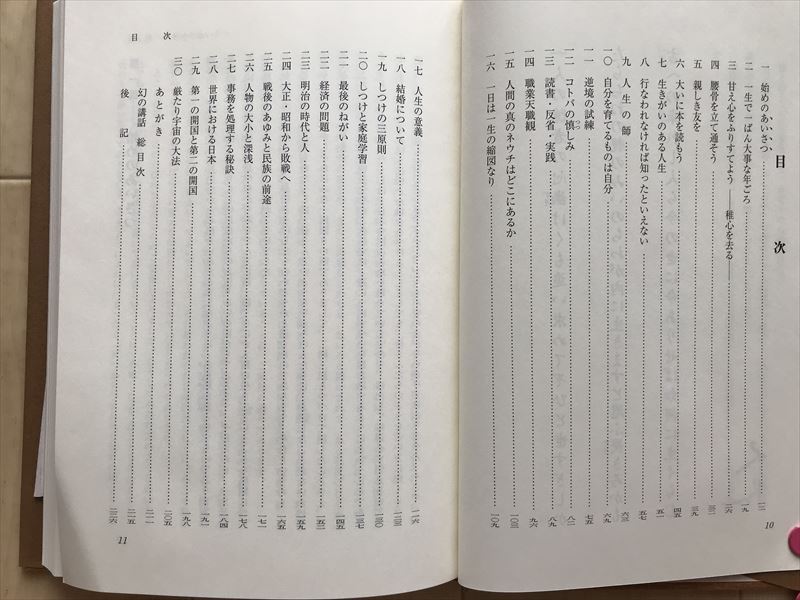 目次
一 始めのあいさつ 一三
二 一生で一ばん大事な年ごろ 一九
三 甘え心をふりすてよう ――稚心を去る―― 二六
四 腰骨を立て通そう 三二
五 親しき友を 三九
六 大いに本を読もう 四五
七 生きがいのある人生 五一
八 行なわれなければ知ったといえない 五七
九 人生の師 六三
一〇 自分を育てるものは自分 六九
一一 逆境の試練 七五
一二 コトバの慎しみ 八二
つつ
一三 読書・反省・実践 八九
一四 職業天職観 九六
一五 人間の真のネウチはどこにあるか 一〇三
一六 一日は一生の縮図なり 一〇九
10
目次
一七 人生の意義 一一六
一八 結婚について 一二三
一九 しつけの三原則 一三〇
二〇 しつけと家庭学習 一三七
二一 最後のねがい 一四五
二二 経済の問題 一五二
二三 明治の時代と人 一五九
二四 大正・昭和から敗戦へ 一六五
二五 戦後のあゆみと民族の前途 一七一
二六 人物の大小と深浅 一七八
二七 事務を処理する秘訣 一八四
二八 世界における日本 一九一
二九 第一の開国と第二の開国 一九八
三〇 厳たり宇宙の大法 二〇五
あとがき 二一一
幻の講話 総目次 二一五
後記 二三六
11